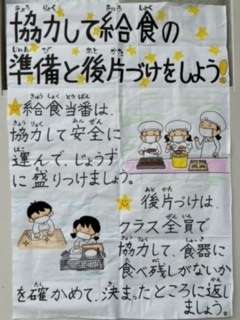 協力して給食の
準備と後片づけをしよう!
給食当番は、
協力して安全に
運んで、じょうず
に盛りつけましょう。
後片づけは、
クラス全員で
協力して、食器に
食べ残しがないか
を確かめて、決まったところに返し
ましょう。